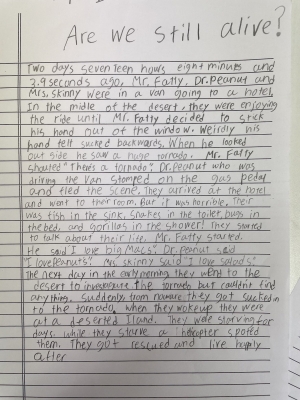 Are we still alive?
Two days seventeen hours eight minuets and
2.9 seconds ago, Mr. Fatty, Dr. Peanut and
Mrs. skinny were in a van going to a hotel.
In the middle of the desert, they were enjoying
the ride until Mr. Fatty decided to stick
his hand out of the window. Weirdly his
hand felt sucked backwards. When he looked
out side he saw a huge tornado. Mr. Fatty
shouted "There's a tornado"! Dr. Peanut who was
driving the van stomped on the gas pedal
and fled the scene. They arrived at the hotel
and went to their room. But it was horrible, Their
was fish in the sink, snakes in the toilet, bugs in
the bed, and gorillas in the shower! They started
to talk about their life. Mr. Fatty started.
He said "I love big Macs". Dr. Peanut said
"I love Peanuts". Mrs. skinny said "I love salads".
The next day in the early morning they went to the
desert to the tornado but couldn't find
anything. Suddenly from nowhere they got sucked in
to the tornado. when they woke up they were
at a deserted Iland. They were starving for
days. while they starve a spoted
them. They got rescued and live happily
after